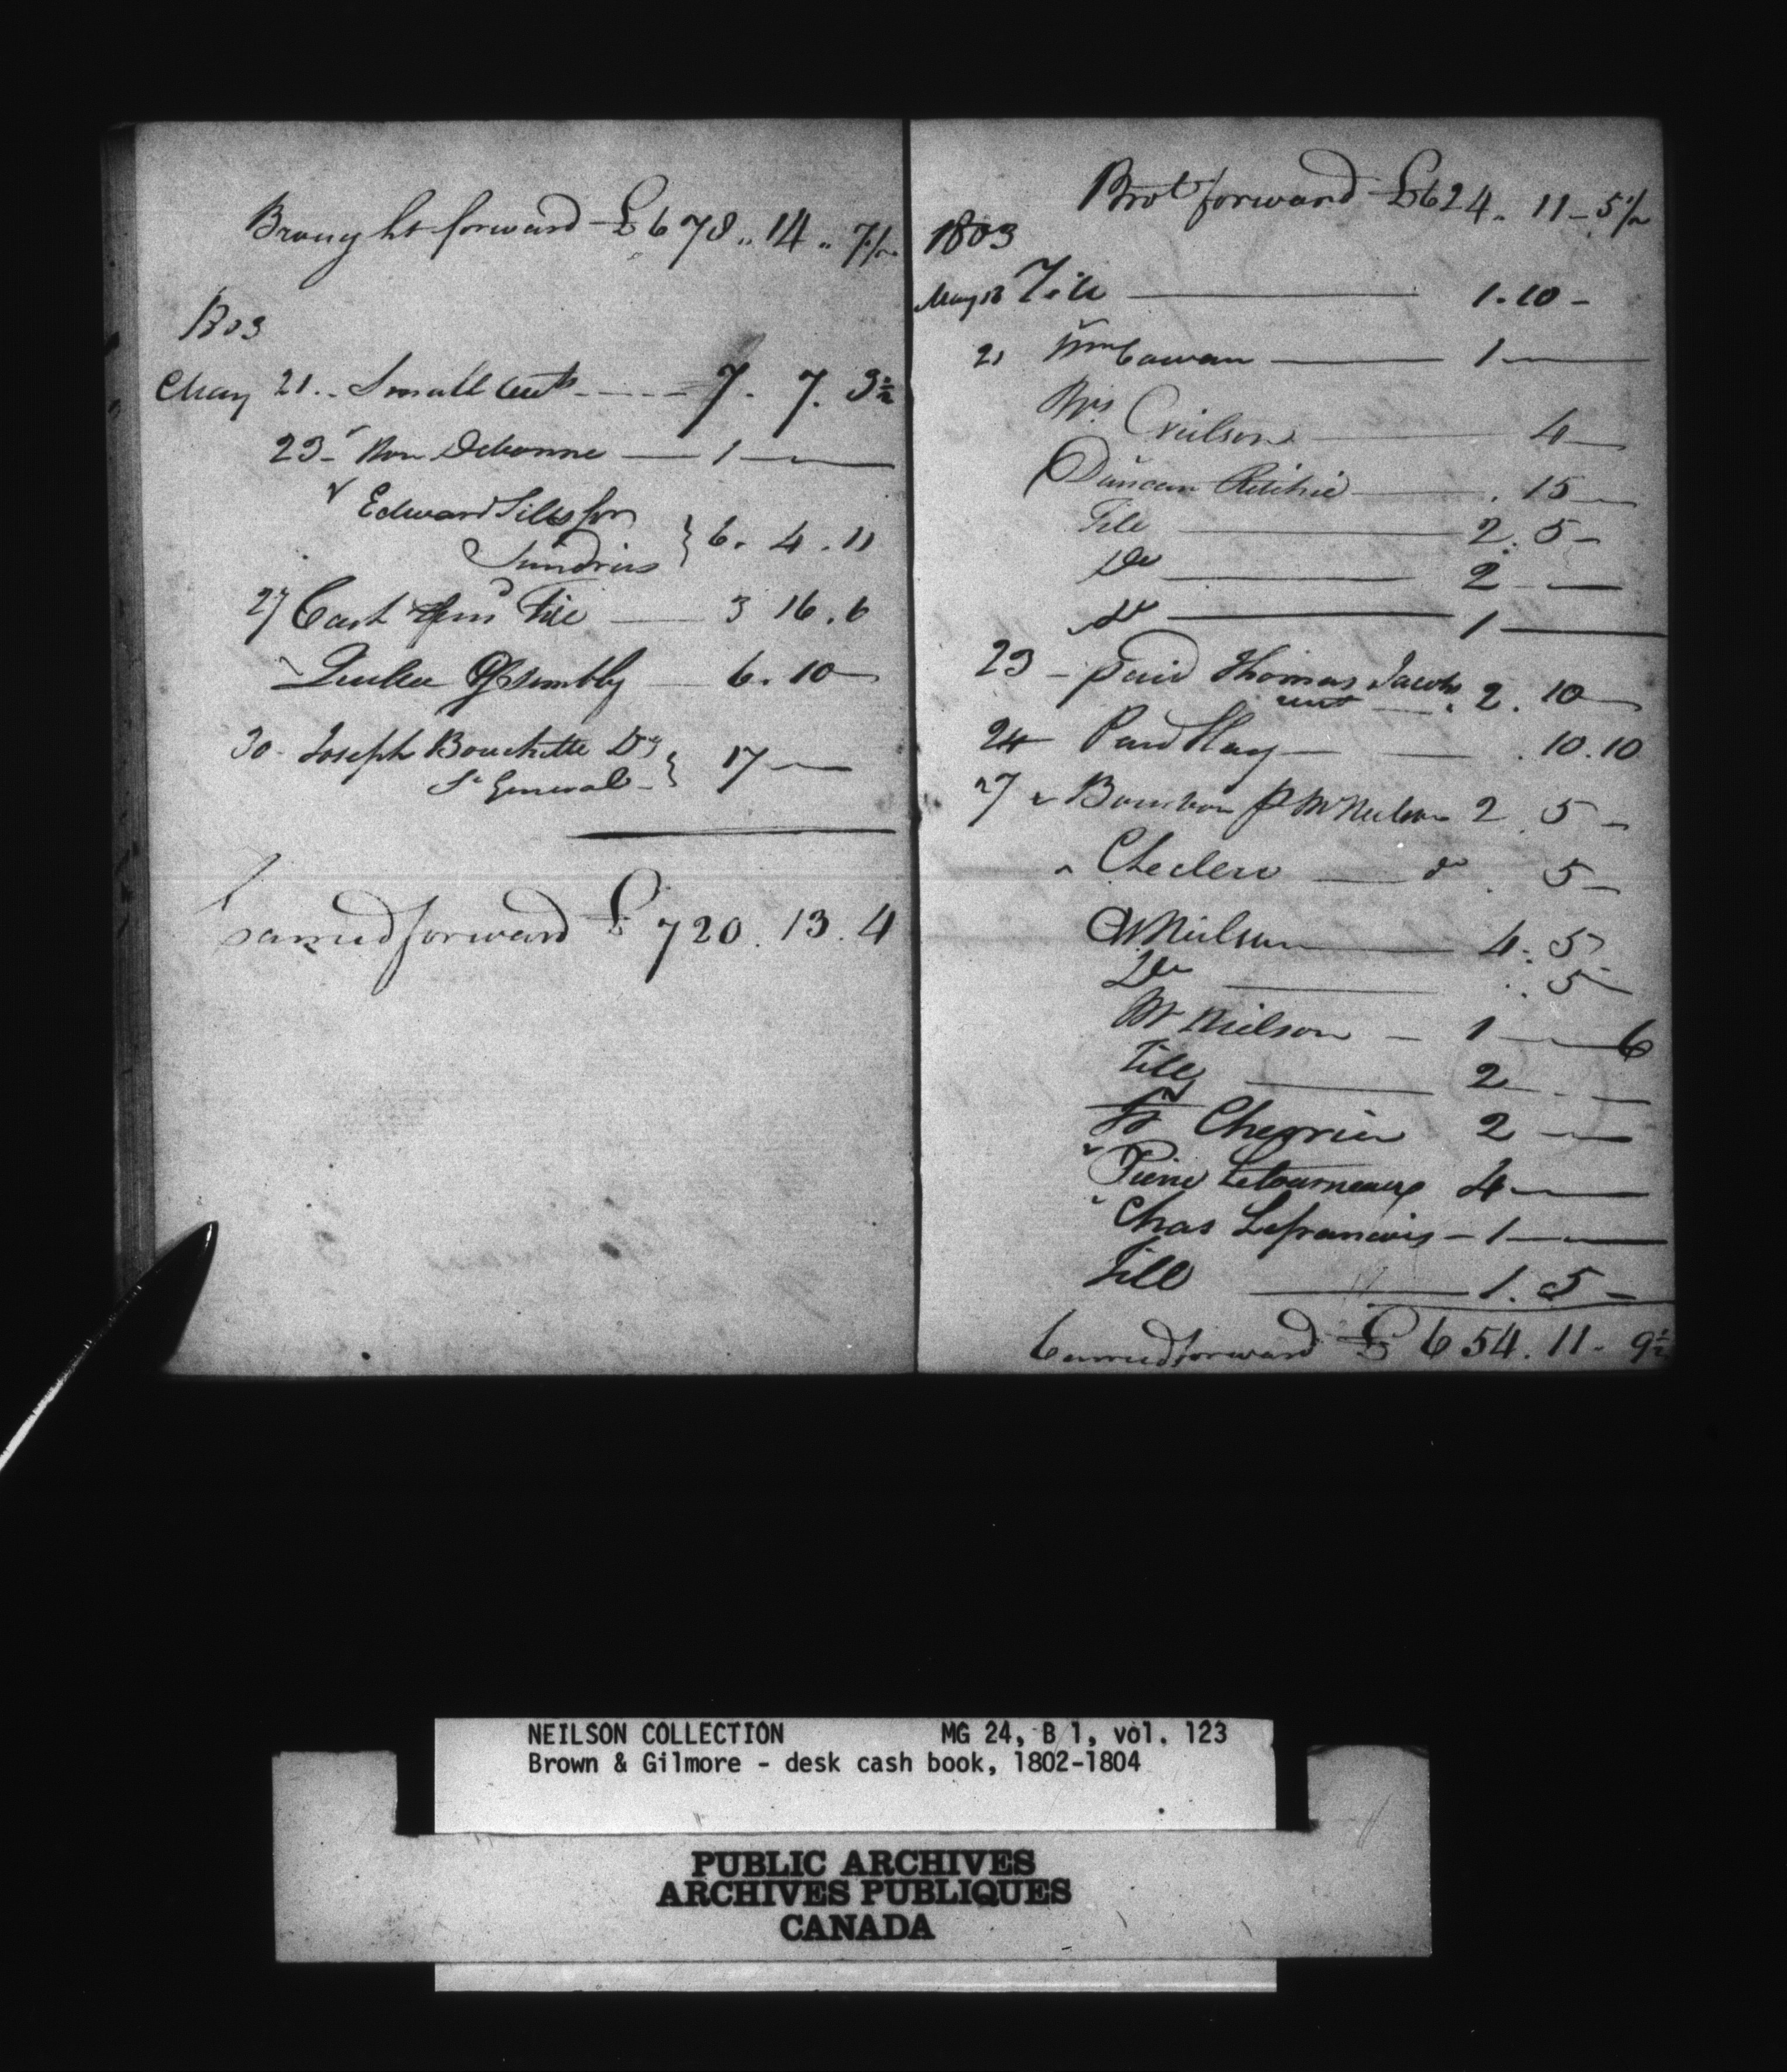 Brought forward £678 .. 14 .. 7½
1803
May 21 .. Small cuts ---- 7 . 7 . 3½
23 Hon Debonne — 1 —
Edward Sills for
Sundries } 6 . 4 . 11
27 Cash from Tile — 3 16 . 6
Quebec Assembly — 6 . 10 —
30 - Joseph Bouchette Dy
Sr General - } 17 —
Carried forward £720 . 13 . 4
Brot forward £624 .. 11 - 5½
1803
May 18 Tile — 1 . 10 -
21 Wm Cowan — 1 —
Mrs Neilson — 4 —
Duncan Ritchie — . 15 —
Tile — 2 . 5 -
Do — 2 —
Do — 1 —
23 - Paid Thomas Jacobs
rent — . 2 . 10 —
24 Paid Hay — . 10 . 10
27 Bourbon P Mr Neilson 2 . 5 -
Leclerc — do . 5 -
W Neilson — 4 . 5
Do — . 5 -
Mr Neilson - 1 — 6
Tile — 2 - -
Fr Cherrier 2 —
Pierre Letourneaux 4 —
Chas Lefrancois - 1 —
Till — 1 . 5 -
Carried forward £654 . 11 - 9½
NEILSON COLLECTION MG 24, B 1, vol. 123
Brown & Gilmore - desk cash book, 1802-1804
PUBLIC ARCHIVES
ARCHIVES PUBLIQUES
CANADA